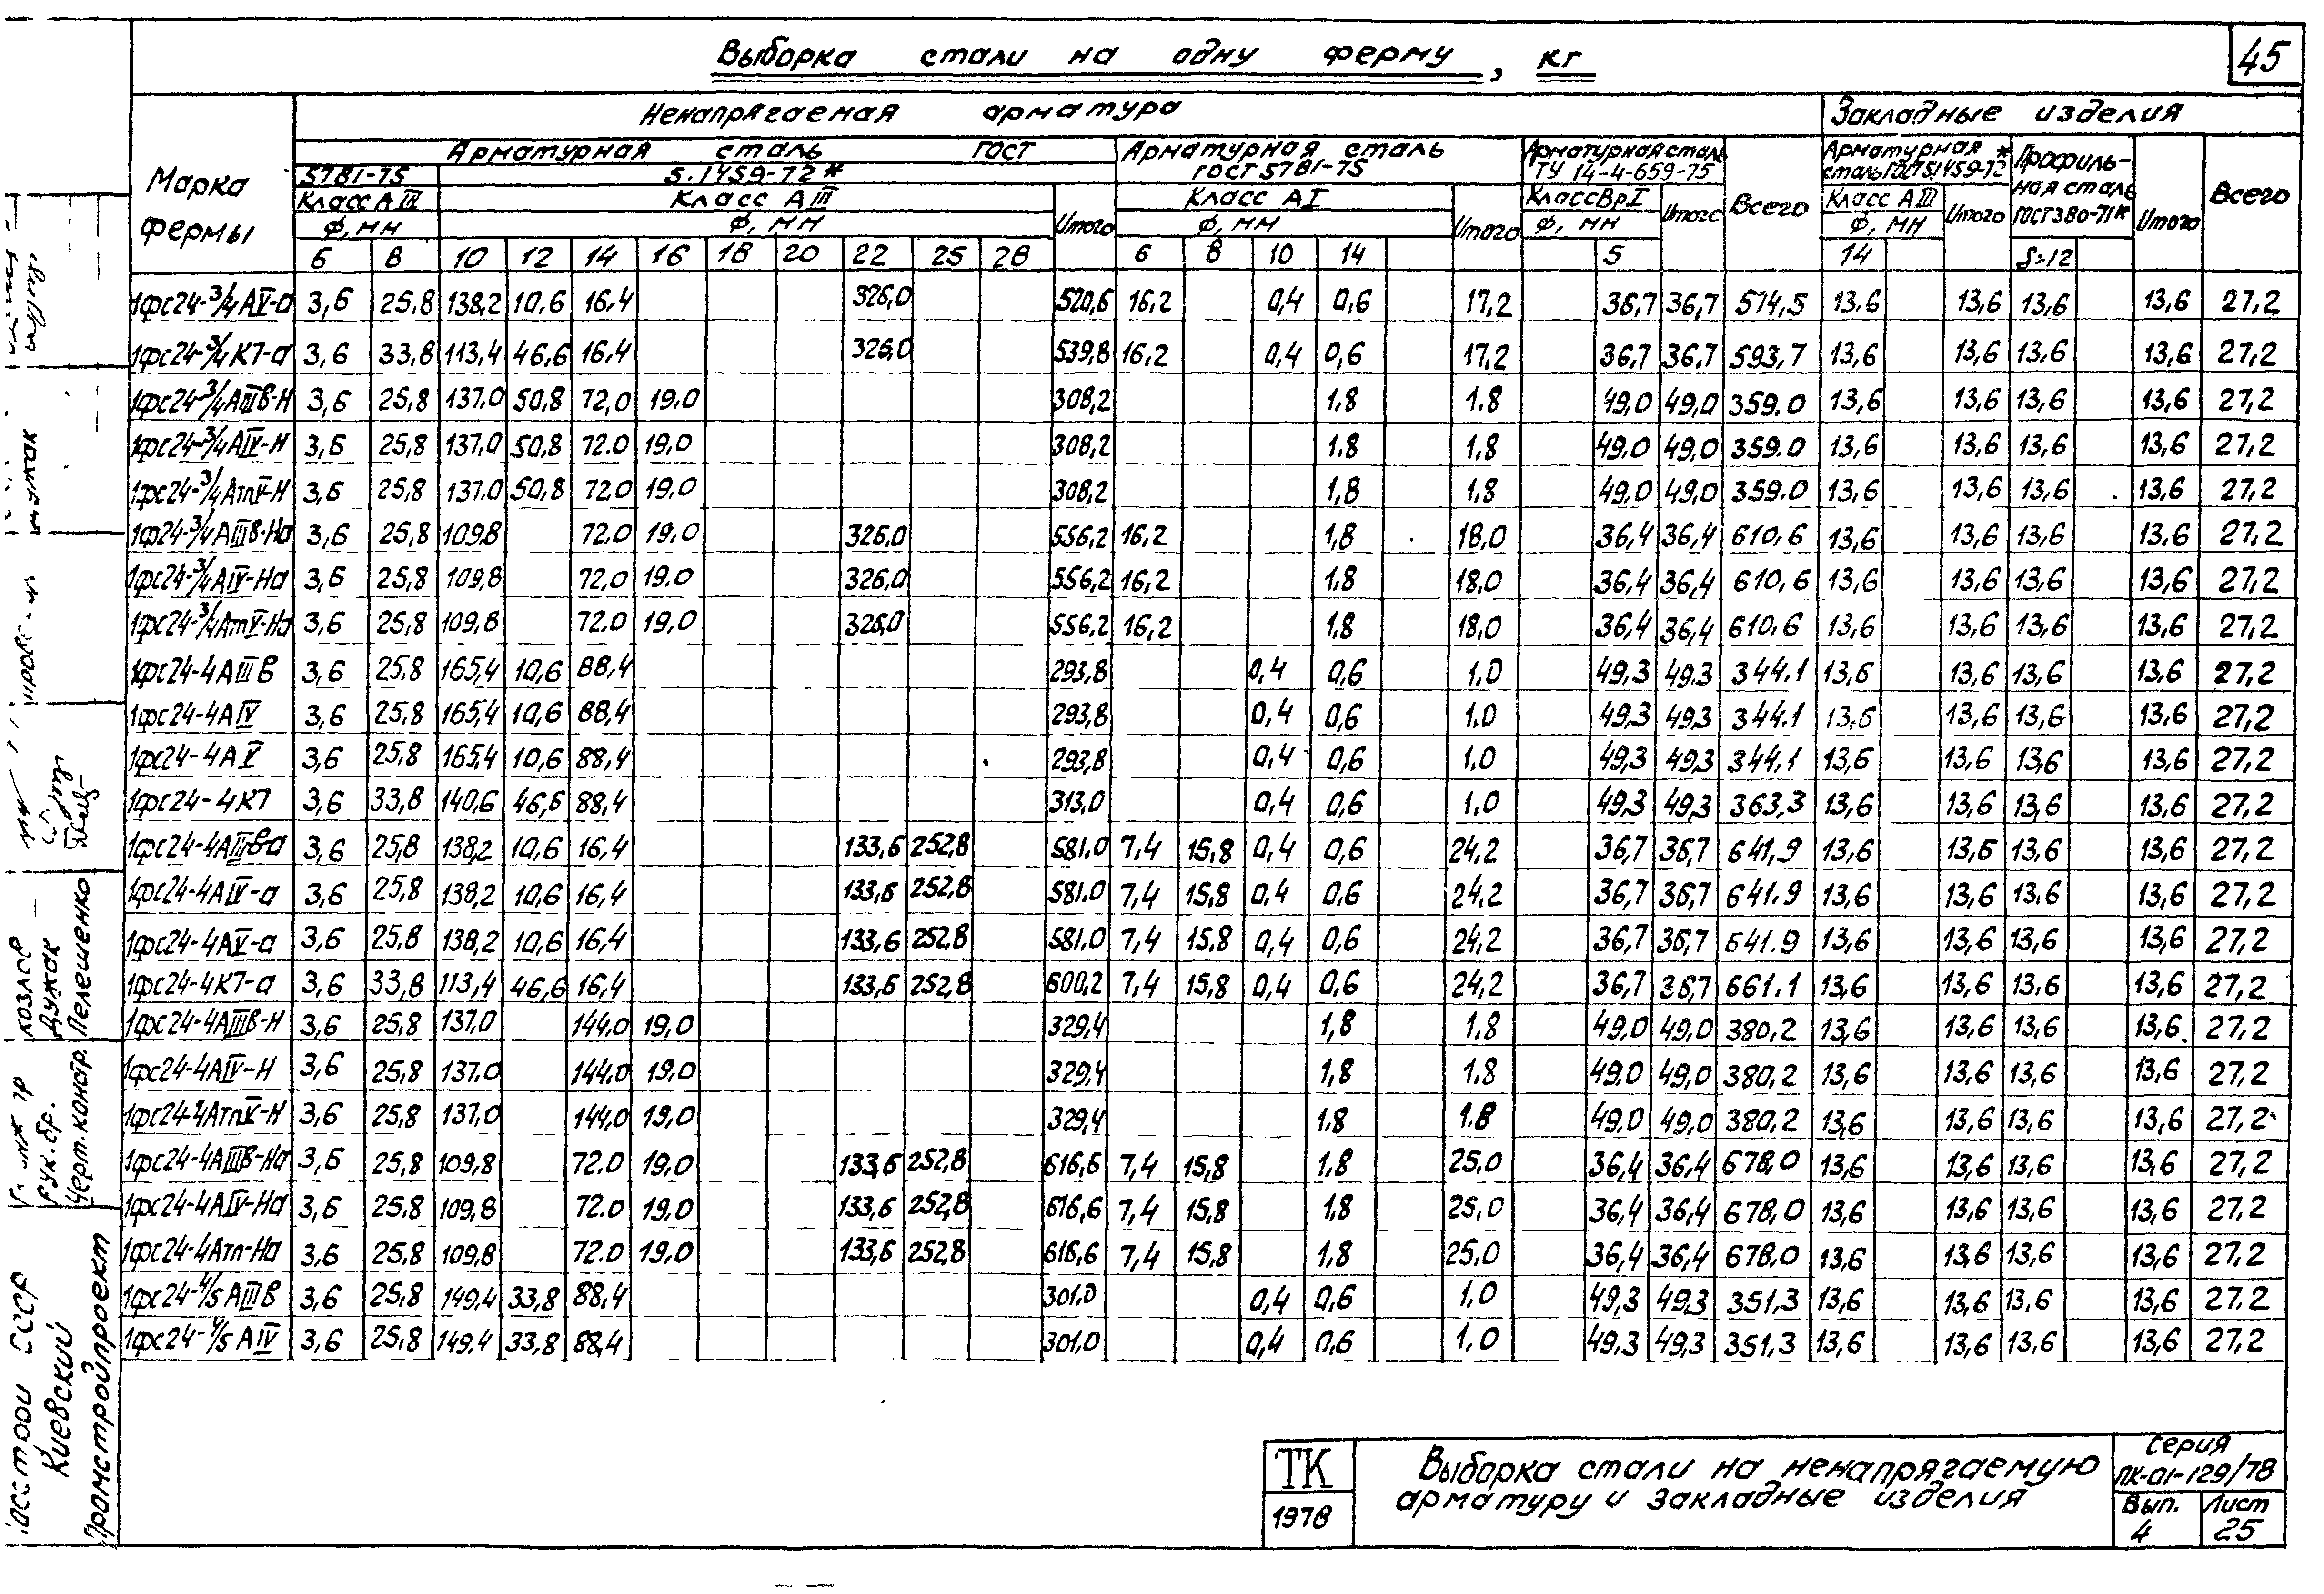 45
Выборка стали на одну ферму, кг
Марка фермы
Ненапрягаемая арматура
Закладные изделия
Арматурная сталь ГОСТ
5781-75
5.1459-72*
Класс АIII
Класс АIII
Ф, мм
Ф, мм
6 8 10 12 14 16 18 20 22 25 28
Итого
Арматурная сталь
ГОСТ 5781-75
Класс АI
Ф, мм
6 8 10 14
Итого
Арматурная сталь
ТУ 14-4-659-75
Класс ВрI
Ф, мм
5
Итого
Всего
Арматурная
сталь ГОСТ5.1459-72*
Класс АIII
Ф, мм
14
Итого
Профиль-
ная сталь
ГОСТ380-71*
δ=12
Итого
Всего
1фс24-3/4АV-а 3,6 25,8 138,2 10,6 16,4 326,0 520,6 16,2 0,4 0,6 17,2 36,7 36,7 574,5 13,6 13,6 13,6 13,6 27,2
1фс24-3/4К7-а 3,6 33,8 113,4 46,6 16,4 326,0 539,8 16,2 0,4 0,6 17,2 36,7 36,7 593,7 13,6 13,6 13,6 13,6 27,2
1фс24-3/4АIIIв-Н 3,6 25,8 137,0 50,8 72,0 19,0 308,2 1,8 1,8 49,0 49,0 359,0 13,6 13,6 13,6 13,6 27,2
1фс24-3/4АIV-Н 3,6 25,8 137,0 50,8 72,0 19,0 308,2 1,8 1,8 49,0 49,0 359,0 13,6 13,6 13,6 13,6 27,2
1фс24-3/4АтV-Н 3,6 25,8 137,0 50,8 72,0 19,0 308,2 1,8 1,8 49,0 49,0 359,0 13,6 13,6 13,6 13,6 27,2
1ф24-3/4АIIIв-На 3,6 25,8 109,8 72,0 19,0 326,0 556,2 16,2 1,8 18,0 36,4 36,4 610,6 13,6 13,6 13,6 13,6 27,2
1фс24-3/4АIV-На 3,6 25,8 109,8 72,0 19,0 326,0 556,2 16,2 1,8 18,0 36,4 36,4 610,6 13,6 13,6 13,6 13,6 27,2
1фс24-3/4АтV-На 3,6 25,8 109,8 72,0 19,0 326,0 556,2 16,2 1,8 18,0 36,4 36,4 610,6 13,6 13,6 13,6 13,6 27,2
1фс24-4АIIIв 3,6 25,8 165,4 10,6 88,4 293,8 0,4 0,6 1,0 49,3 49,3 344,1 13,6 13,6 13,6 13,6 27,2
1фс24-4АIV 3,6 25,8 165,4 10,6 88,4 293,8 0,4 0,6 1,0 49,3 49,3 344,1 13,6 13,6 13,6 13,6 27,2
1фс24-4АV 3,6 25,8 165,4 10,6 88,4 293,8 0,4 0,6 1,0 49,3 49,3 344,1 13,6 13,6 13,6 13,6 27,2
1фс24-4К7 3,6 33,8 140,6 46,6 88,4 313,0 0,4 0,6 1,0 49,3 49,3 363,3 13,6 13,6 13,6 13,6 27,2
1фс24-4АIIIв-а 3,6 25,8 138,2 10,6 16,4 133,6 252,8 581,0 7,4 15,8 0,4 0,6 24,2 36,7 36,7 641,9 13,6 13,6 13,6 13,6 27,2
1фс24-4АIV-а 3,6 25,8 138,2 10,6 16,4 133,6 252,8 581,0 7,4 15,8 0,4 0,6 24,2 36,7 36,7 641,9 13,6 13,6 13,6 13,6 27,2
1фс24-4АV-а 3,6 25,8 138,2 10,6 16,4 133,6 252,8 581,0 7,4 15,8 0,4 0,6 24,2 36,7 36,7 641,9 13,6 13,6 13,6 13,6 27,2
1фс24-4К7-а 3,6 33,8 113,4 46,6 16,4 133,6 252,8 600,2 7,4 15,8 0,4 0,6 24,2 36,7 36,7 661,1 13,6 13,6 13,6 13,6 27,2
1фс24-4АIIIв-Н 3,6 25,8 137,0 144,0 19,0 329,4 1,8 1,8 49,0 49,0 380,2 13,6 13,6 13,6 13,6 27,2
1фс24-4АIV-Н 3,6 25,8 137,0 144,0 19,0 329,4 1,8 1,8 49,0 49,0 380,2 13,6 13,6 13,6 13,6 27,2
1фс24-4АтV-Н 3,6 25,8 137,0 144,0 19,0 329,4 1,8 1,8 49,0 49,0 380,2 13,6 13,6 13,6 13,6 27,2
1фс24-4АIIIв-На 3,6 25,8 109,8 72,0 19,0 133,6 252,8 616,6 7,4 15,8 1,8 25,0 36,4 36,4 678,0 13,6 13,6 13,6 13,6 27,2
1фс24-4АIV-На 3,6 25,8 109,8 72,0 19,0 133,6 252,8 616,6 7,4 15,8 1,8 25,0 36,4 36,4 678,0 13,6 13,6 13,6 13,6 27,2
1фс24-4Ат-На 3,6 25,8 109,8 72,0 19,0 133,6 252,8 616,6 7,4 15,8 1,8 25,0 36,4 36,4 678,0 13,6 13,6 13,6 13,6 27,2
1фс24-4/5АIIIв 3,6 25,8 149,4 33,8 88,4 301,0 0,4 0,6 1,0 49,3 49,3 351,3 13,6 13,6 13,6 13,6 27,2
1фс24-4/5АIV 3,6 25,8 149,4 33,8 88,4 301,0 0,4 0,6 1,0 49,3 49,3 351,3 13,6 13,6 13,6 13,6 27,2
ТК
1978
Выборка стали на ненапрягаемую
арматуру и закладные изделия
Серия
ПК-01-129/78
Вып.
4
Лист
25
СССР
Киевский
Промстройпроект
рук. бр.
Черт. контр.
Козлов
Дужак
Пелешенко